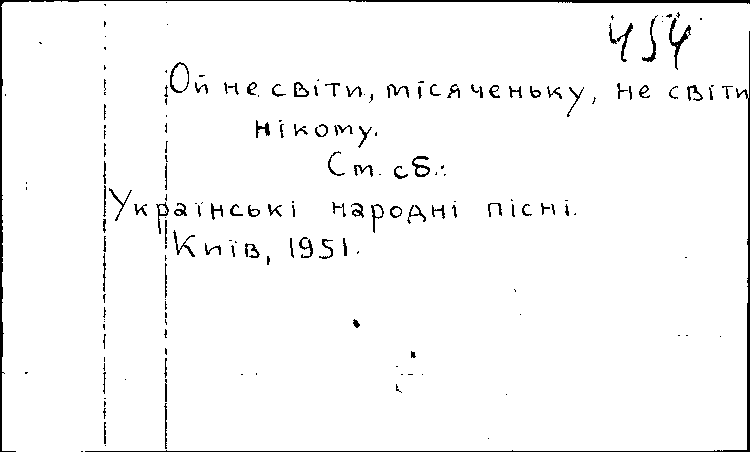 454
Ой не світи, місяченьку, не світи
нікому.
Ст. сб.:
Українські народні пісні.
Київ, 1951.